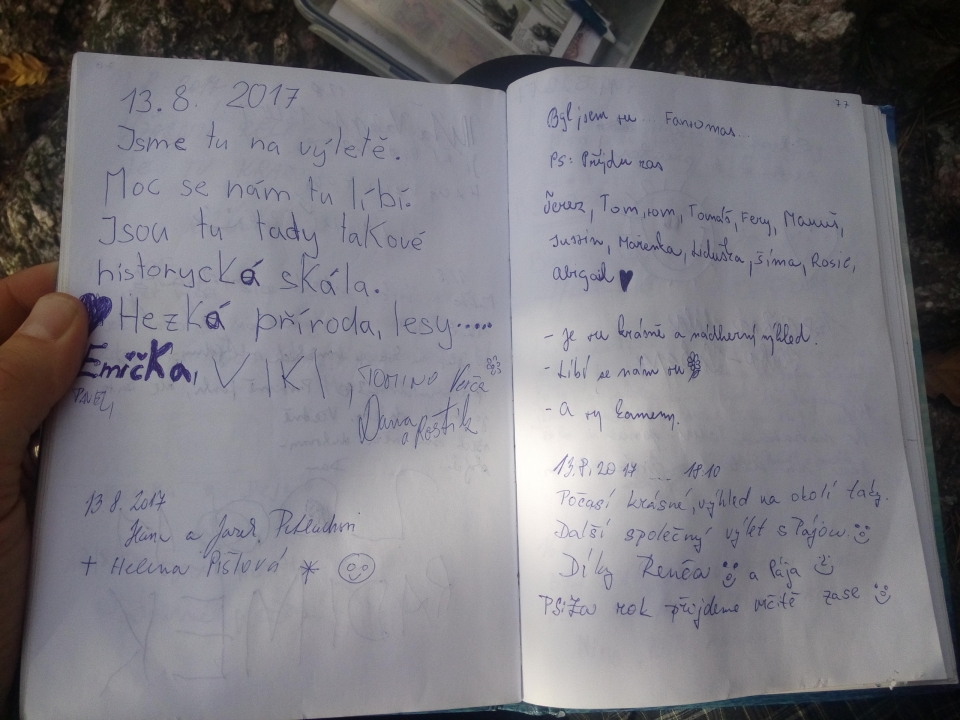 13.8. 2017
Jsme tu na výletě.
Moc se nám tu líbí.
Jsou tu tady takové
historycká skála.
Hezká příroda, lesy.....
Emička, VIKI, TOMINO Verča
Dana
a Rostík
13.8.2017
a Jarek
+ Helena Pištová
77
Byl jsem tu ... Fantomas...
PS: Přijdu zas
Tom, Tomáš, Fery,
Justin, Mařenka, Liduška, Šíma, Rosie,
Abigail
- Je tu krásně a nádherný výhled.
- Líbí se nám tu
- A ty kameny.
13.8.2017 ... 18:10
Počasí krásné, výhled na okolí taky.
Další společný výlet s Pájou.
Díky Renča a Pája
PS: Za rok přijdeme určitě zase